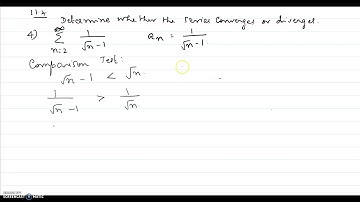 11.4 Determine whether the series converges or diverges.
4) ∞ ∑ n=2 1/(√n -1) aₙ = 1/(√n -1)
Comparison Test:
√n -1 < √n.
1/(√n -1) > 1/√n